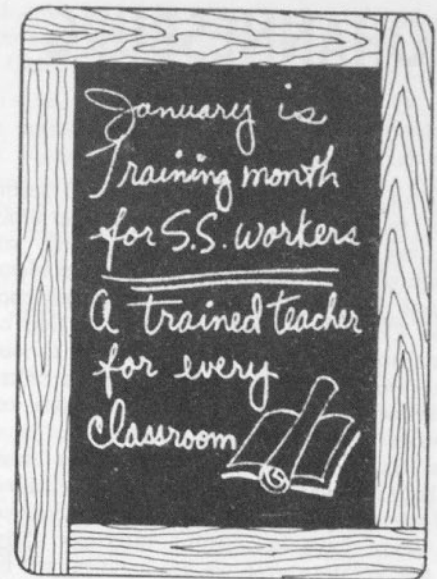 January is
Training month
for S.S. workers
A trained teacher
for every
classroom